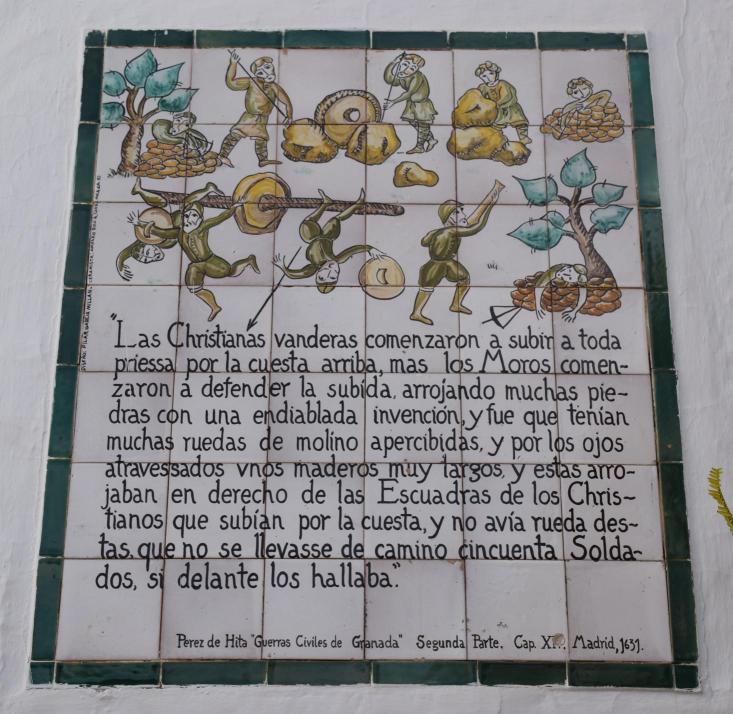 "Las Christianas vanderas comenzaron a subir a toda
priessa por la cuesta arriba, mas los Moros comen-
zaron á defender la subida, arrojando muchas pie-
dras con una endiablada invención, y fue que tenían
muchas ruedas de molino apercibidas, y por los ojos
atravessados vnos maderos muy largos, y estas arro-
jaban en derecho de las Escuadras de los Chris-
tianos que subían por la cuesta, y no avía rueda des-
tas, que no se llevasse de camino cincuenta Solda-
dos, si delante los hallaba."
Perez de Hita "Guerras Civiles de Granada" Segunda Parte. Cap. Madrid, 1631.